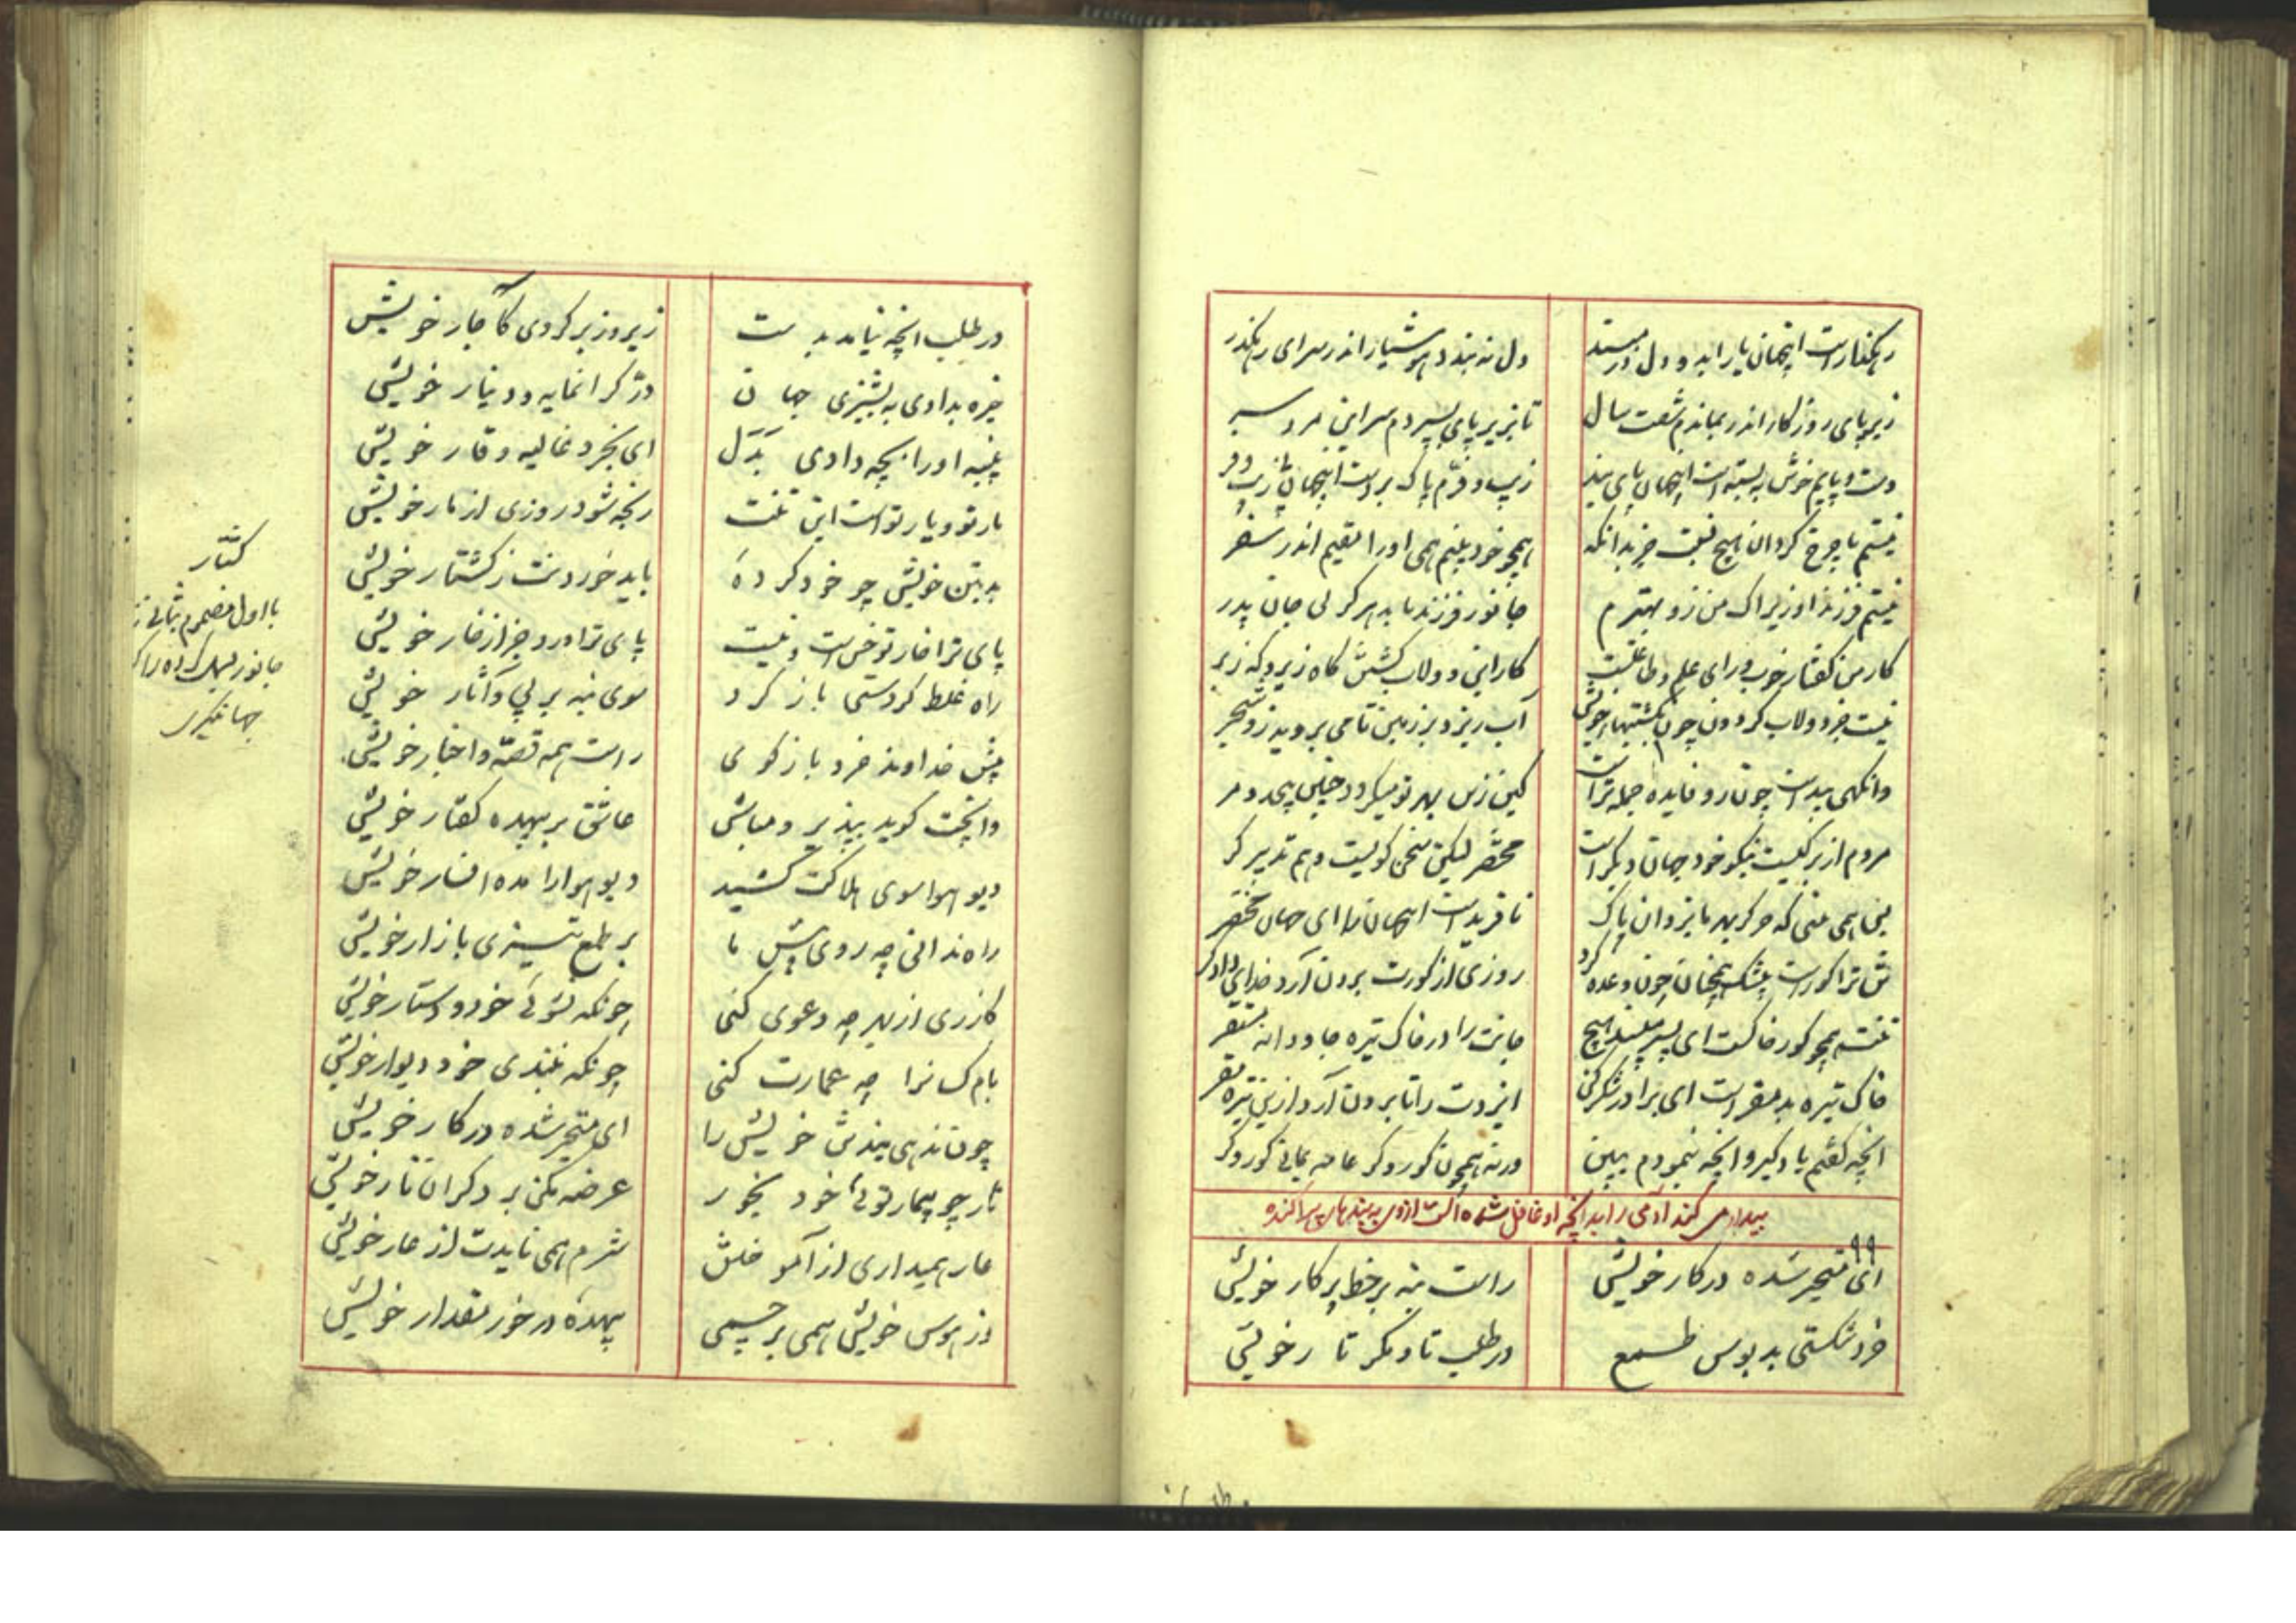 رهگذار است اینجهان یارا بدو دل در مبند
دل نه بندد هوشیار اندر سرای رهگذر
زیر پای روزگار اندر بماندم شصت سال
تا بزیر پای بسپردم سر این مرد سر
دست و پایم خوش ببسته است اینجهان پای بند
زیب و فرم پاک برده است اینجهان زیب و فر
نیستم با چرخ گردان هیچ نسبت جز بدانکه
همچو خود بینم همی او را مقیم اندر سفر
نیستم فرزند او زیراک من زو بهترم
جانور فرزند ناید هرگز از بی جان پدر
کار من گفتار خوب و رای علم و طاعتست
کار این دولاب گشتن گاه زیر و گه زبر
نیست جز دولاب گردون چون بگشتنهای خویش
آب ریزد بر زمین تا می بروید زو شجر
وانگهی پیداست چون تار و فایده جمله تراست
کین زبس بهر تو میگردد چنین بی حد و مر
مردم از ترکیب نیکو خود جهان دیگر است
مختصر لیکن سخن گویست و هم تدبیرگر
می همی بینی که هر کو بهر ما یزدان پاک
نافریدست اینجهان را ای جهان مختصر
تن ترا گور است بیشک همچنان چون وعده کرد
روزی از گورت برون آرد خدای دادگر
تنت همچو گور خاکست ای پسر مپسند هیچ
جانت را در خاک تیره جاودانه مستقر
خاک تیره بد مقر است ای برادر شکر کن
ایزدت را تا برون آرد ازین تیره مقر
انچه گفتم یاد گیر و انچه بنمودم ببین
ورنه همچون کور و کر عامه بمانی کور و کر
بیدار می کند آدمی را بدانچه او غافل شده است از وی به پندهای پراکنده
۹۹
ای متحیر شده در کار خویش
راست بنه بر خط پرگار خویش
خرد شکستی بدبوس طمع
در طلب تا و مگر تا ر خویش
در طلب انچه نیامد بدست
زیر و زبر کردی کاچار خویش
خیره بدادی به پشیزی جهان
در گرانمایه و دینار خویش
پنبه او را بچه دادی بدل
ای بخرد غالیه و قار خویش
مار تو و یار تو است این تنت
رنجه شود روزی از مار خویش
بد بتن خویش چو خود کرده
باید خوردنت ز کشتار خویش
پای ترا خار تو خست و نیست
پای ترا درد جز از خار خویش
راه غلط کردستی باز گرد
سوی بنه بر پی و آثار خویش
پیش خداوند خرد بازگوی
راست همه قصه و اخبار خویش
وانچت گوید بپذیر و مباش
عاشق بر بیهده گفتار خویش
دیو هوا سوی هلاکت کشید
دیو هوا را مده افسار خویش
راه ندانی چه روی پیش ما
بر طمع تیزی بازار خویش
گازری از بهر چه دعوی کنی
چونکه نشوئی خود دستار خویش
بام کسانرا چه عمارت کنی
چونکه نبندی خود دیوار خویش
چون ندهی پندش خویش را
ای متحیر شده در کار خویش
نار چو بیمار توئی خود بخور
عرضه مکن بر دگران نار خویش
عار همیداری از آموختن
شرم همی نایدت از عار خویش
وز هوس خویش همی بر چسبی
بیهده در خور مقدار خویش
کشتار
با اول مضموم بثانی زده
جانور بسمل کرده را گویند
جهانگیری